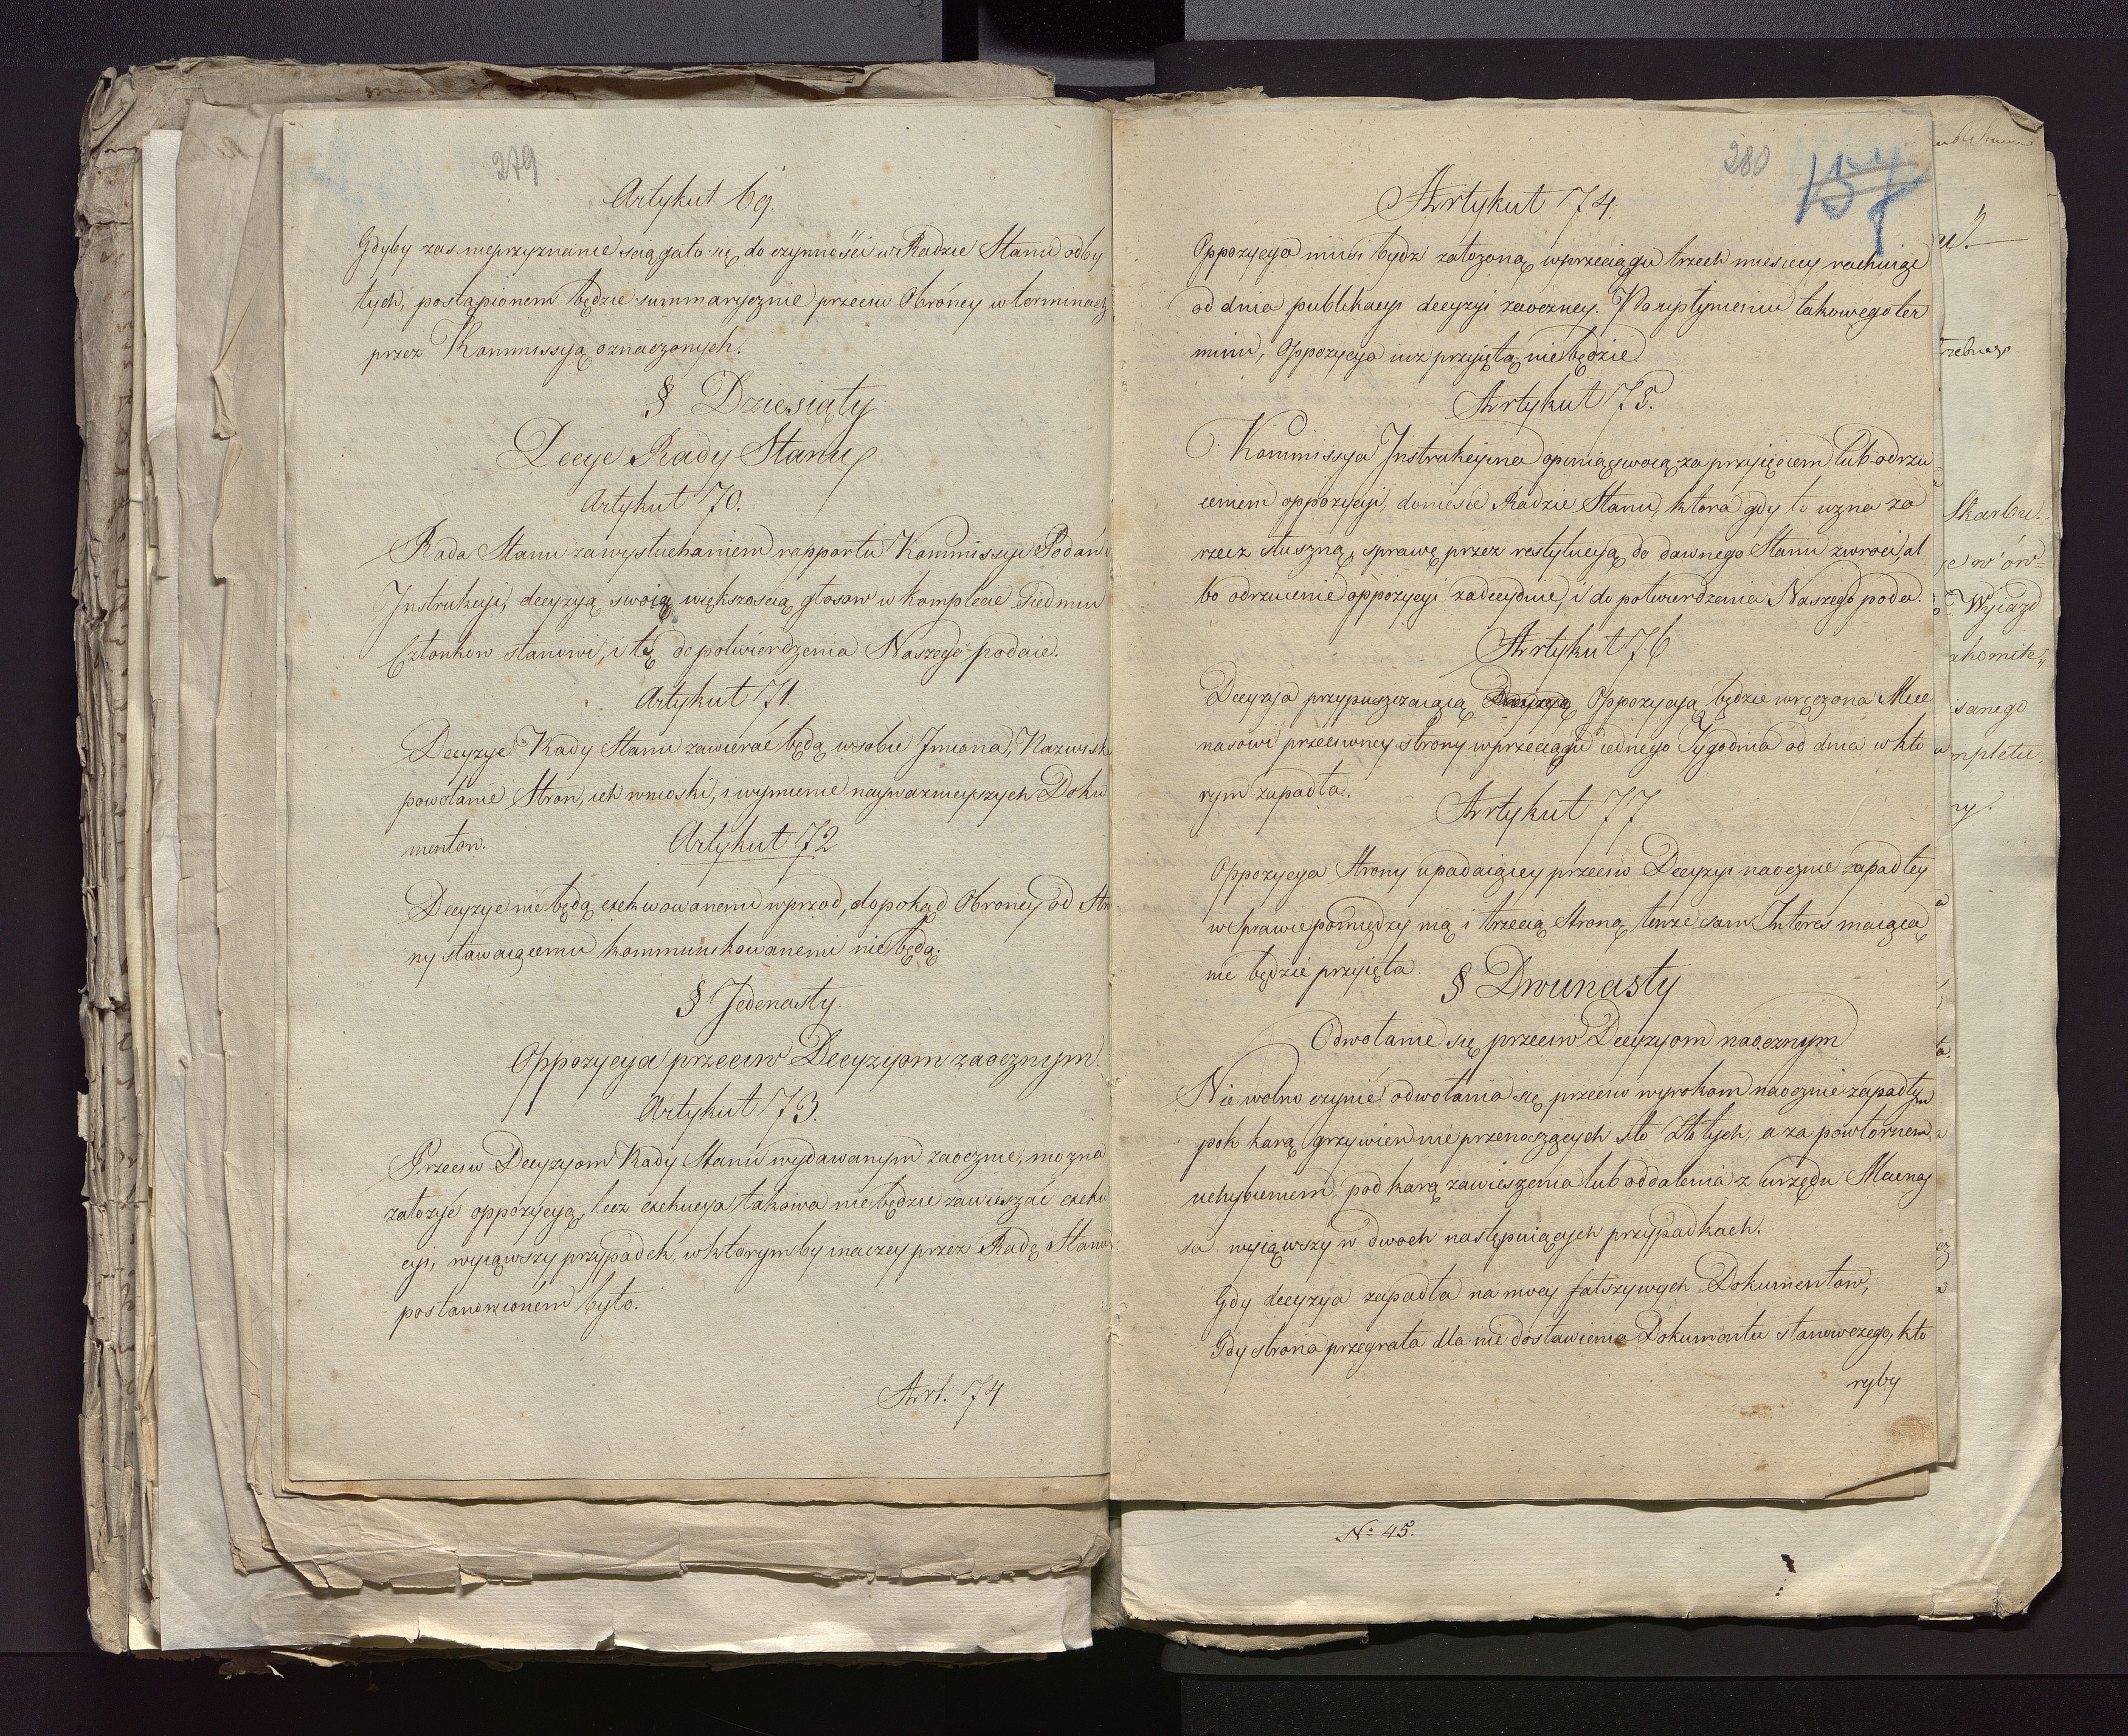 279
Artykuł 69.
Gdyby zas nieprzyznanie sciągało się do czynności w Radzie Stanu odby
tych, postąpionem będzie summarycznie przeciw Obróńcy w terminach
przez Kommissyą oznaczonych.
§ Dziesiąty
Decyze Rady Stanu
Artykuł 70.
Rada Stanu za wysłuchaniem rapportu Kommissyi Podań i
Instrukcji, decyzyą swoią większoscią głosow w komplecie siedmiu
Członkow stanowi, i tę do potwierdzenia Naszego podaie.
Artykuł 71.
Decyzye Rady Stanu zawierać będą w sobie Jmiona, Nazwisk
powołanie Stron, ich wnioski, i wymienie nayważnieyszych Doku
mentow.
Artykuł 72
Decyzye nie będą exekwowanemi wprzod, dopokąd Obroncy od Stro
ny stawaiącemu kommunikowanemi nie będą.
§ Jedenasty
Oppozycya przeciw Decyzyom zaocznym.
Artykuł 73.
Przeciw Decyzyom Rady Stanu wydawanym zaocznie, mozna
załozyć oppozycyą, lecz exekucya takowa nie będzie zawieszać exeku
cyi, wyiąwszy przypadek, w ktorymby inaczey przez Radę Stanu
postanowionem było.
Art: 74
280
157
Artykuł 74.
Oppozycya musi bydz załozoną w przeciągu trzech miesięcy rachuiąc
od dnia publikacyi decyzyi zaoczney. Po upłynieniu takowego ter
minu, Oppozycya iuz przyiętą nie będzie.
Artykuł 75.
Kommissya Jnstrukcyina opinią swoią za przyięciem lub odrzu
ceniem oppozycyi, doniesie Radzie Stanu, ktora gdy to uzna za
rzecz słuszną, sprawę przez restytucyą do dawnego Stanu zwroci, al
bo odrzucenie oppozycyi zadecyduie, i do potwierdzenia Naszego poda.
Artykuł 76
Decyzya przypuszczaiąca Decyzyą Oppozycyą będzie wręczona Mece
nasowi przeciwney strony w przeciągu iednego Tygodnia od dnia w kto
rym zapadła.
Artykuł 77
Oppozycya Strony upadaiącey przeciw Decyzyi naocznie zapadłey
w sprawie pomiędzy nią i trzecią Stroną tenze sam Jnteres maiącą
nie będzie przyięta.
§ Dwunasty
Odwołanie się przeciw Decyzyom naocznym
Nie wolno czynić odwołania się przeciw wyrokom naocznie zapadłym
pok karą grzywien nie przenoszących sto Złotych, a za powtornem
uchybieniem, pod karą zawieszenia lub oddalenia z urzędu Mecenas
sa wyiąwszy w dwoch następuiących przypadkach.
Gdy decyzya zapadła na mocy fałszywych Dokumentow,
Gdy strona przegrała dla nie dostawienia Dokumentu stanowczego, kto
ryby
Skarbu.
Wyiazd
sanego
mpletu.
ny.
No 45.